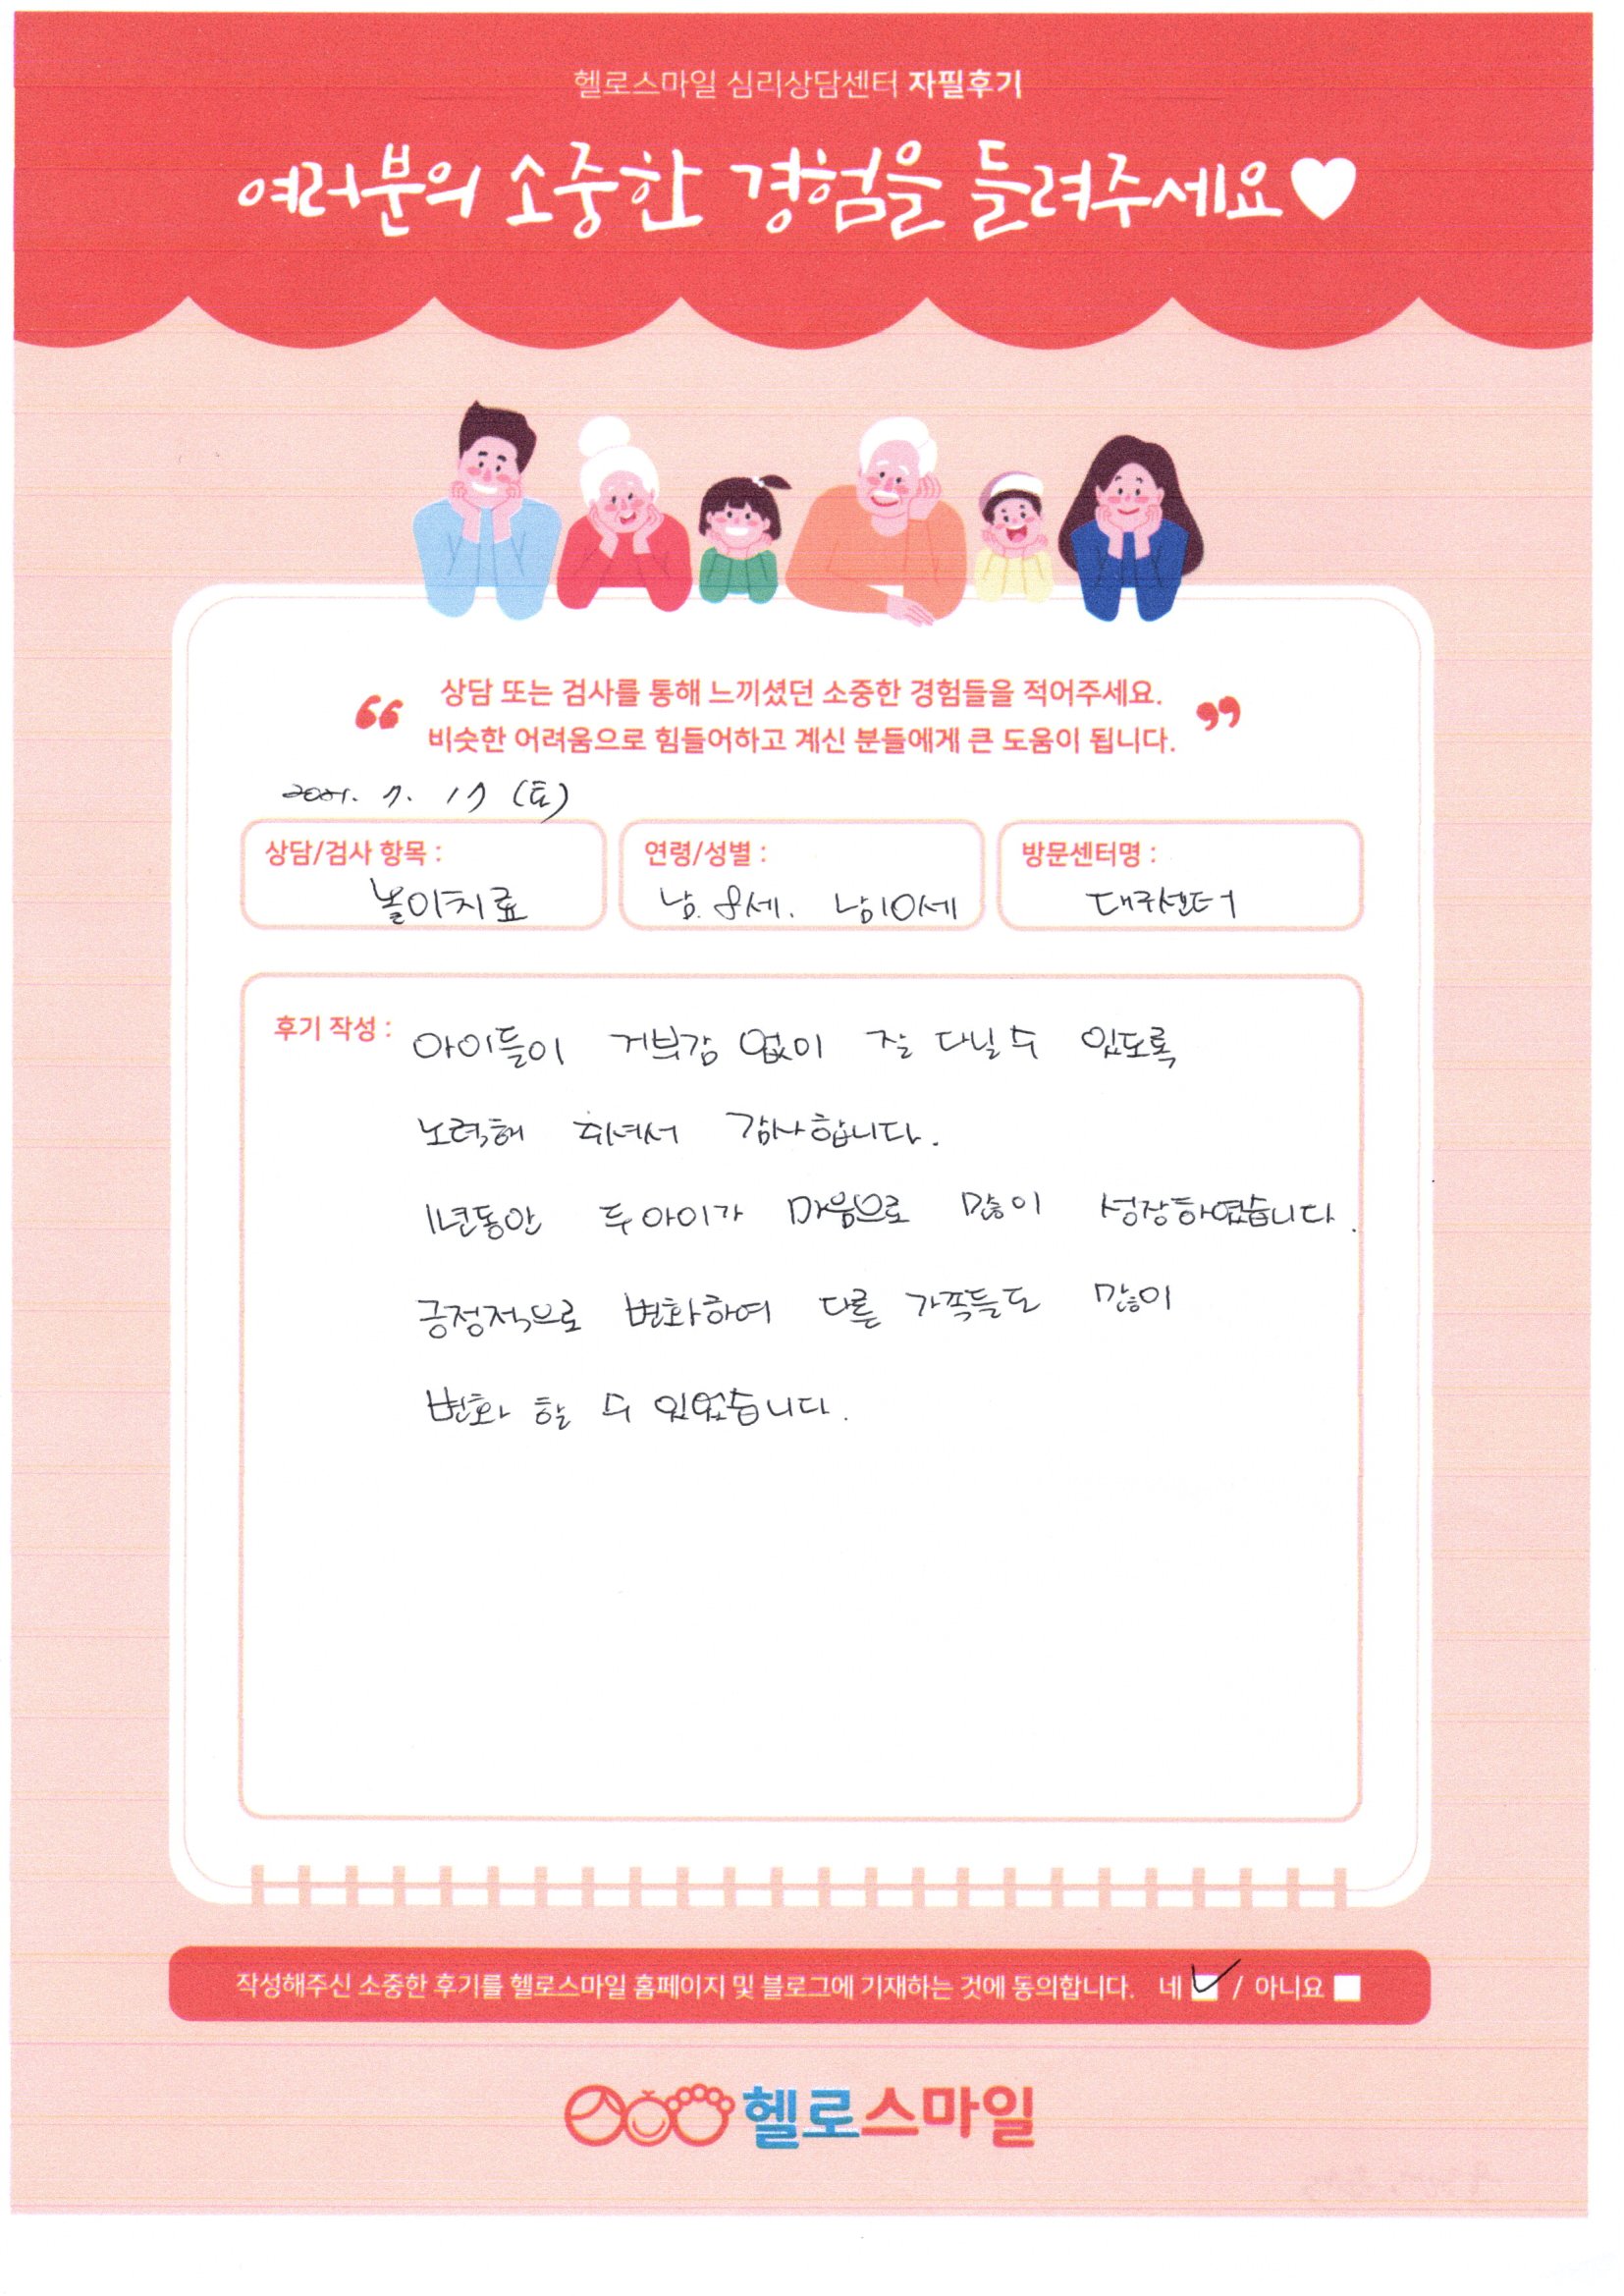 헬로스마일 심리상담센터 자필후기
여러분의 소중한 경험을 들려주세요♥
“ 상담 또는 검사를 통해 느끼셨던 소중한 경험들을 적어주세요.
비슷한 어려움으로 힘들어하고 계신 분들에게 큰 도움이 됩니다. ”
2021. 7. 17 (토)
상담/검사 항목 :
놀이치료
연령/성별 :
남. 8세. 남10세
방문센터명 :
대구센터
후기 작성 : 아이들이 거부감 없이 잘 다닐 수 있도록
노력해 주셔서 감사합니다.
1년동안 두아이가 마음으로 많이 성장하였습니다.
긍정적으로 변화하여 다른 가족들도 많이
변화 할 수 있었습니다.
작성해주신 소중한 후기를 헬로스마일 홈페이지 및 블로그에 기재하는 것에 동의합니다. 네 ☑ / 아니요 ☐
헬로스마일